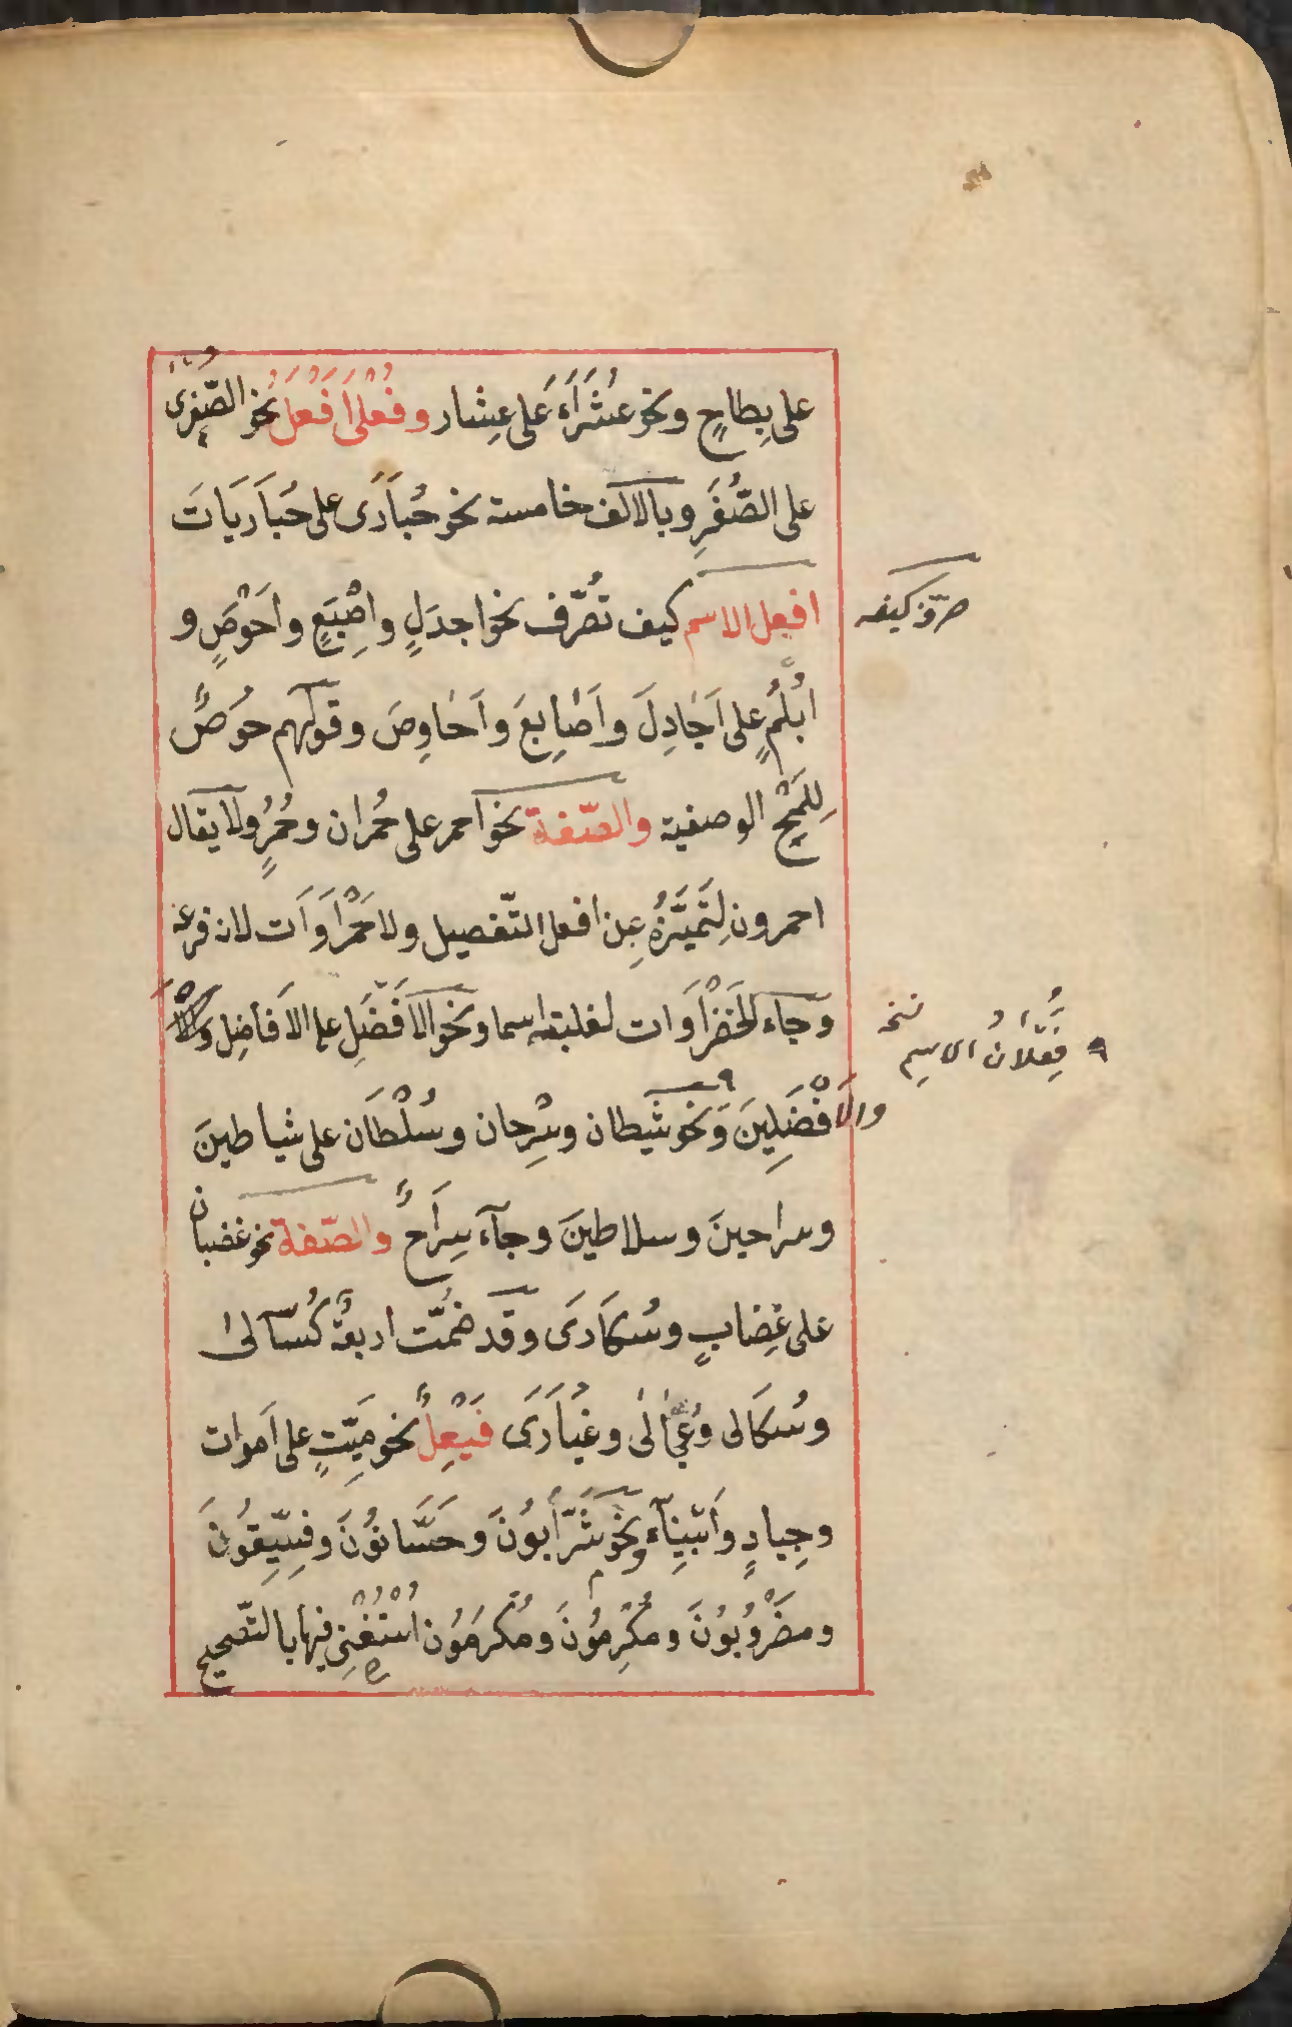 على بِطاحٍ ونحو عُشَرَاءَ عَلى عِشار وفُعْلَى اَفْعَلَ نحو الصُّغرىٰ
على الصُّغَرِ وبالالف خامسة نحو حُبَارَى على حُبَارَيَاتَ
افعل الاسم كيف تُصُرِّف نحو اجدَلٍ واِصْبَعٍ واَحْوَصٍ و
اُبْلُمٍ على اَجَادِلَ واَصَابِعَ واَحَاوِصَ وقولهم حُوصٌ
لِلَمْحِ الوصفية والصّفة نحو احمر على حُمران وحُمُرٍ ولا يقال
احمرون لِتَمَيُّزِهِ عن افعل التّفضيل ولا حَمْرَاوَات لانه فرعه
وجاء الخَضْرَاوَات لغلبته اسما ونحو الاَفْضَلِ على الاَفَاضِلِ
والاَفْضَلِينَ وَنحو شيطان وسِرْحان وسُلْطَان على شياطينَ
وسراحينَ وسلاطينَ وجآءَ سِرَاحٌ والصّفة نحو غضبان
على غِضابٍ وسُكَارَى وقد ضُمَّت اربعةٌ كُسَالىٰ
وسُكَالى وعُجَالىٰ وغُيَارَى فَيْعِلٌ نحو مَيّتٍ على اَموات
وجِيادٍ واَبْيِنَآء ونحو شَرَّابُونَ وحَسَّانُوْنَ وفِسِّيقُونَ
ومَضْرُوْبُوْنَ ومُكْرِمُوْنَ ومُكْرَمُوْن اُسْتُغْنِيَ فيها بالتّصحيح
نسخه
فَعْلَانُ الاسِم